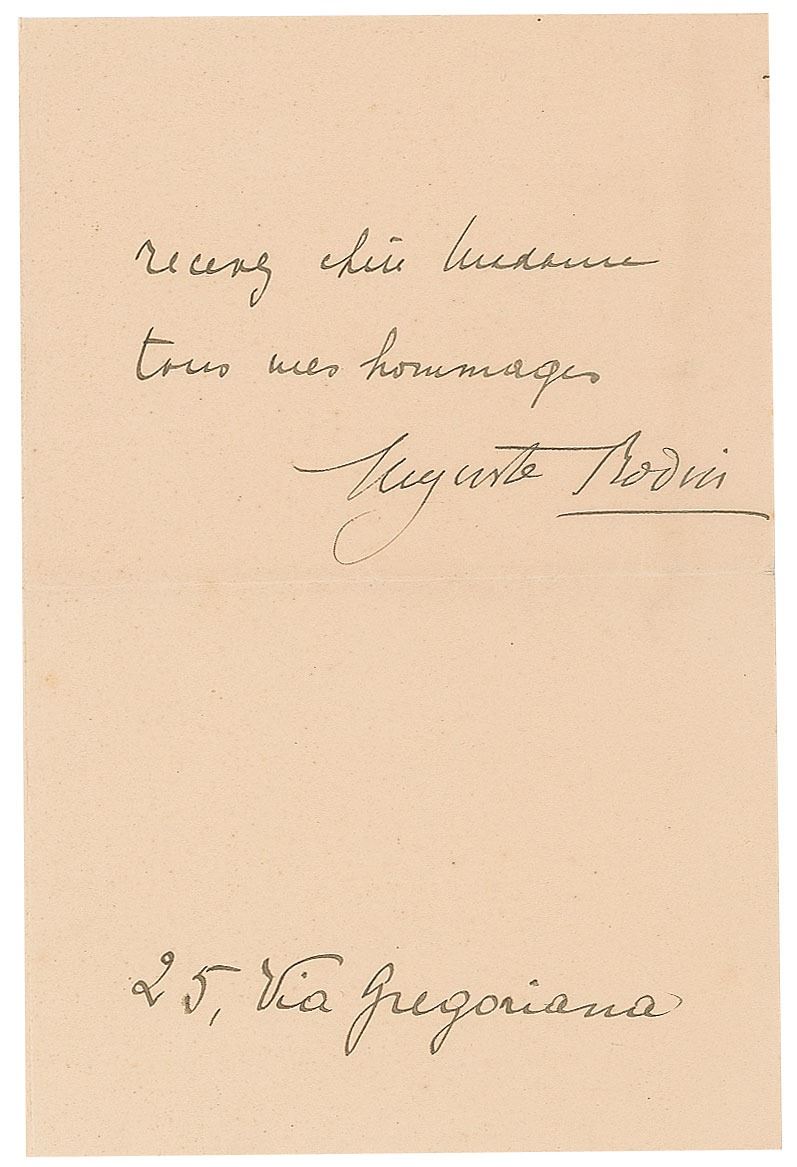 recevez chère Madame
tous mes hommages
Auguste Rodin
25, Via Gregoriana